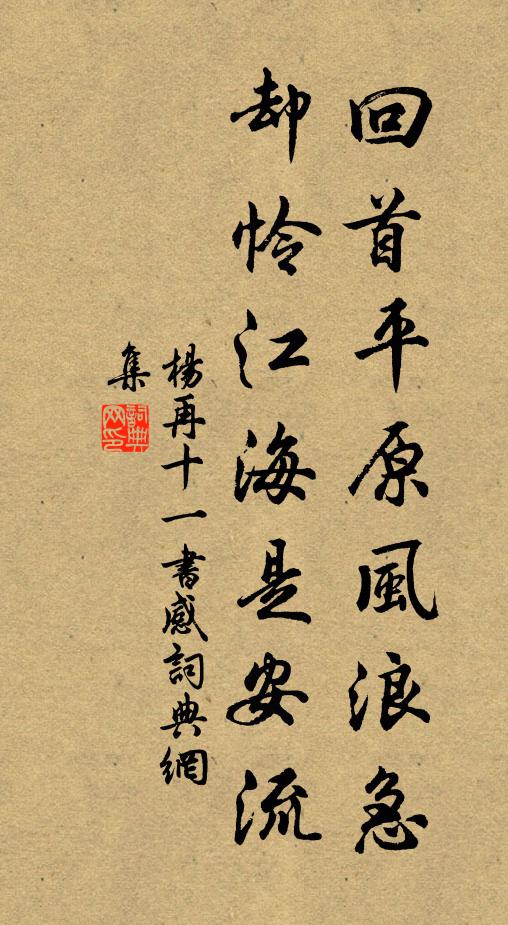 回首平原風浪急
却怜江海是安流
楊再十一書感詞典網
集
詞典网印